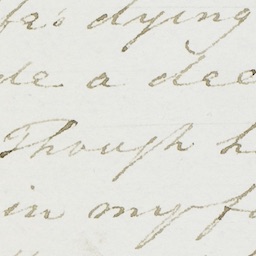 dying
de a dee
Though h
in my fa